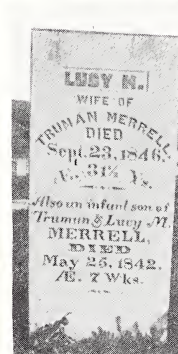 LUCY M.
WIFE OF
TRUMAN MERRELL
DIED
Sept. 23, 1846.
Æ. 31½ Ys.
Also an infant son of
Truman & Lucy M.
MERRELL,
DIED
May 25, 1842.
Æ. 7 Wks.